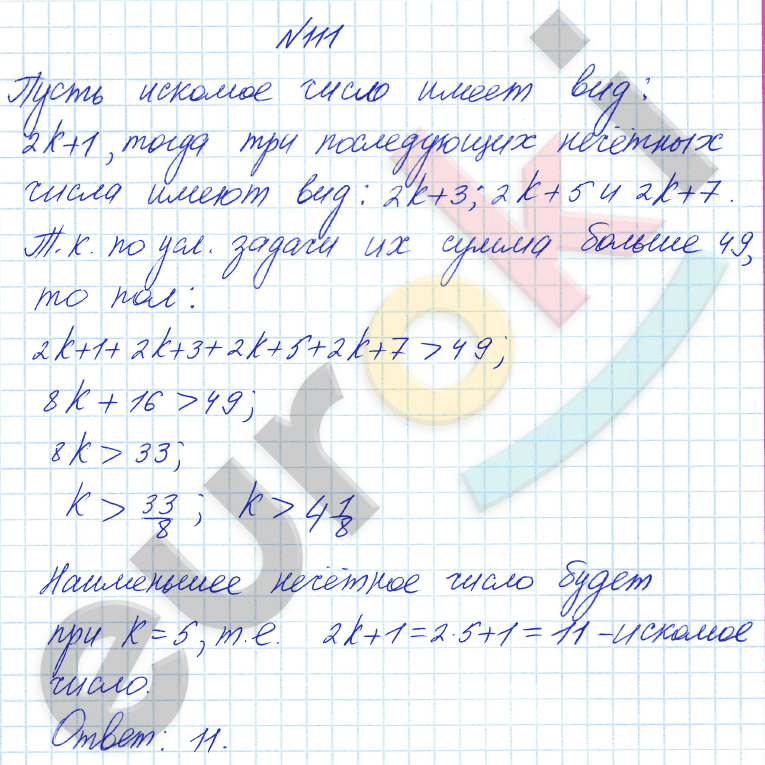 №111
Пусть искомое число имеет вид:
2k+1, тогда три последующих нечётных
числа имеют вид: 2k+3; 2k+5 и 2k+7.
Т.к. по усл. задачи их сумма больше 49,
то пол:
2k+1+2k+3+2k+5+2k+7>49;
8k+16>49;
8k>33;
k>33/8; k>4 1/8
Наименьшее нечётное число будет
при k=5, т.е. 2k+1=2·5+1=11-искомое
число.
Ответ: 11.
euroki